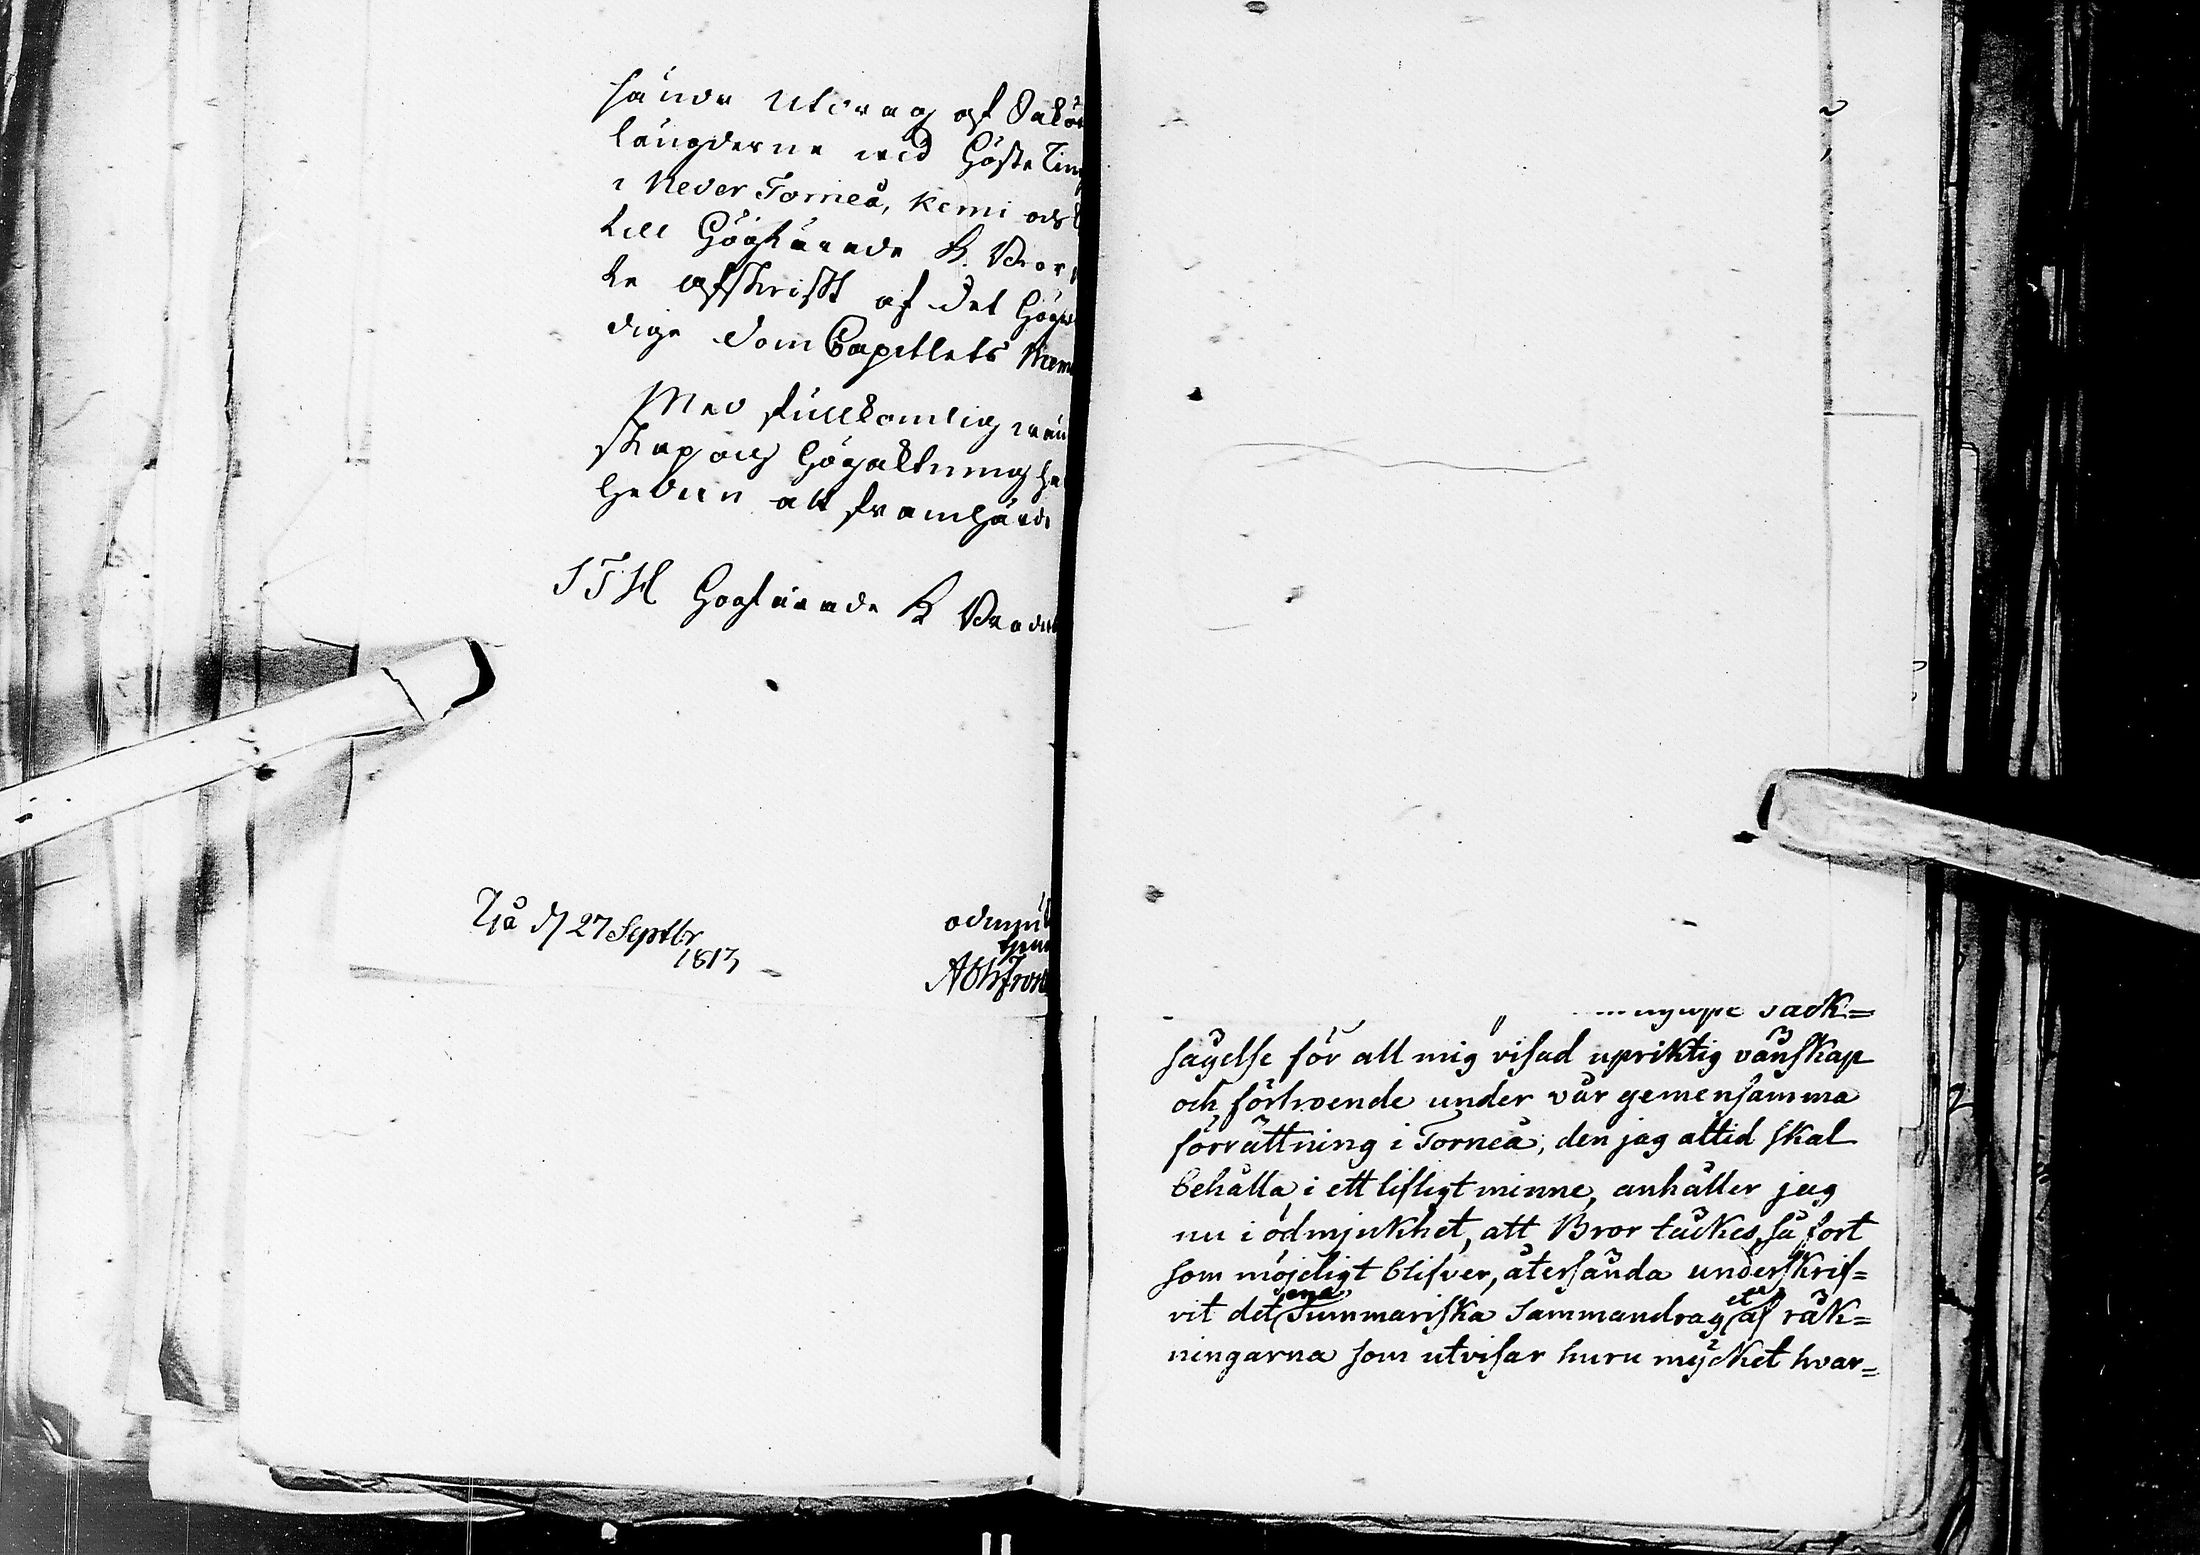 sända Utdrag af Saköres
längderne wid Höste Ting
i Neder Torneå, Kemi och
till Högtärade H. Bror,
te afskrift af det Högw
dige Dom Capitlets Rem
Med fullkomlig wän
skap och högaktning ha
hedren att framhärda
STH Högtärade H Brode
Tjå d 27 Septbr
1813
ödmjuk
tjena
dack=
sägelse för all mig visad upriktig vänskap
och förtroende under vår gemensamma
förrättning i Torneå, den jag altid skal
behålla i ett lifligt minne, anhåller jag
nu i ödmjukhet, att Bror täckes, så fort
som möjeligt blifver, återsända underskrif=
vit det ena Summariska Sammandraget af räk=
ningarna som utvisar huru mycket hvar=